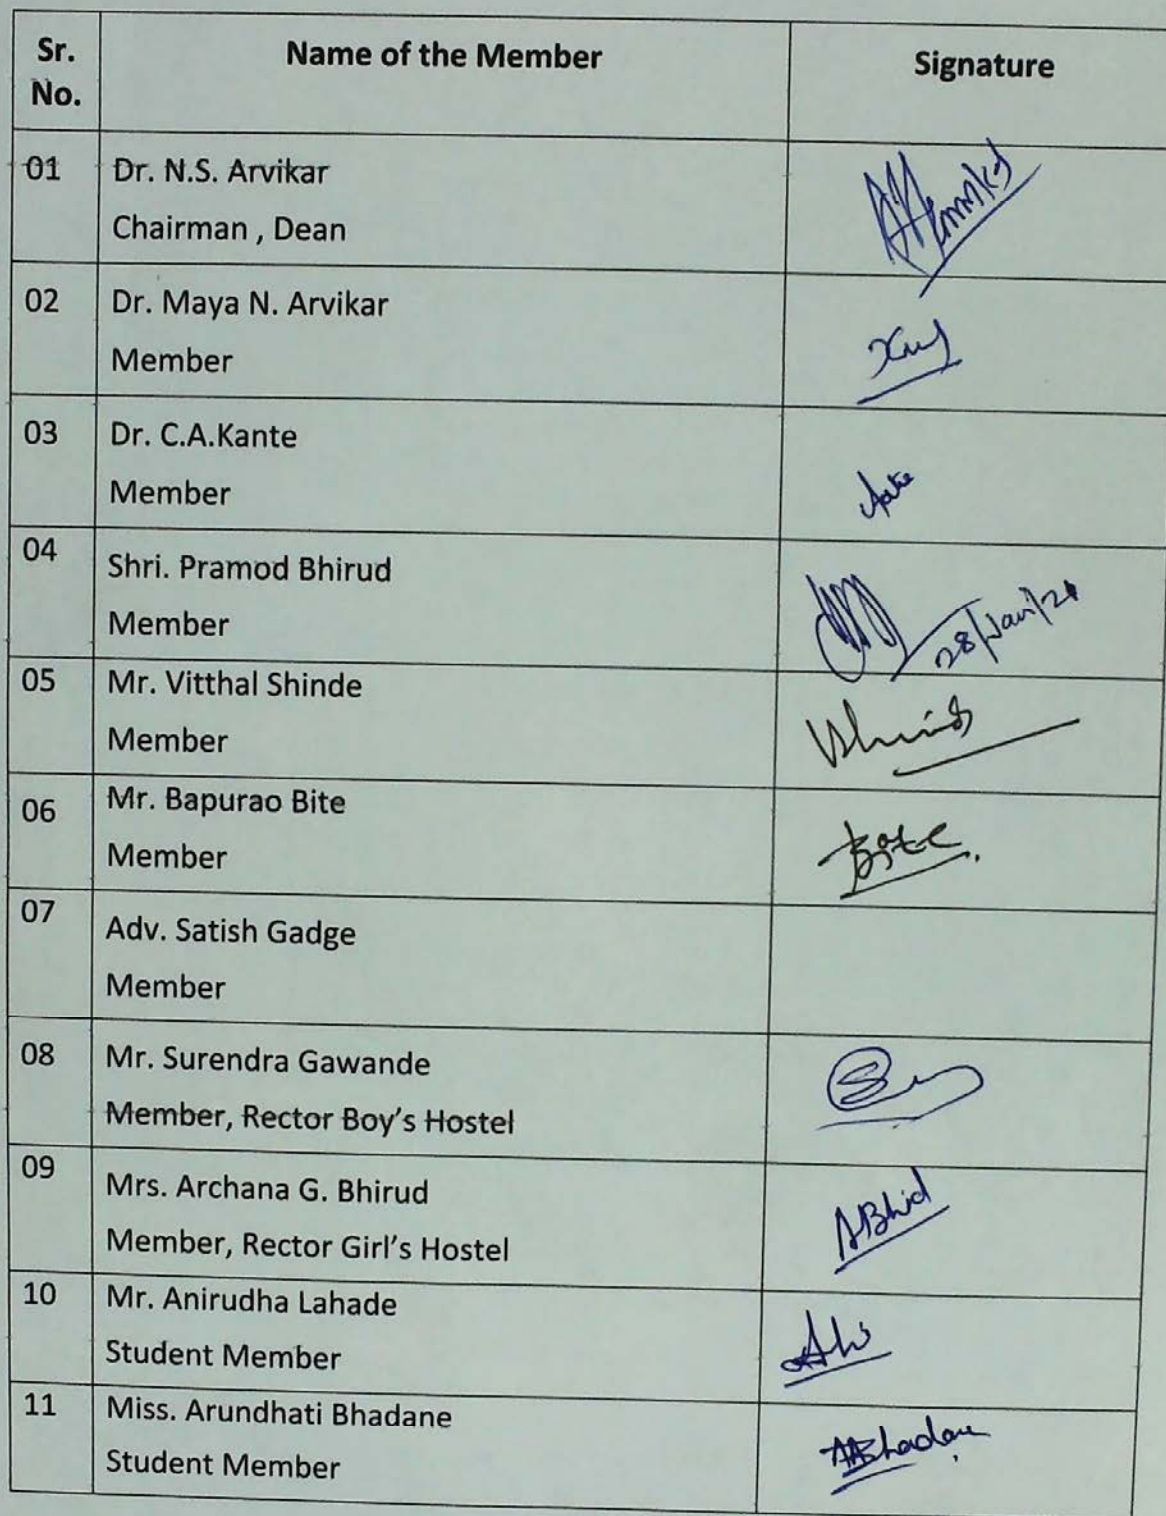 Sr. No. Name of the Member Signature
01 Dr. N.S. Arvikar
Chairman , Dean
02 Dr. Maya N. Arvikar
Member
03 Dr. C.A.Kante
Member
04 Shri. Pramod Bhirud
Member 28/Jan/21
05 Mr. Vitthal Shinde
Member
06 Mr. Bapurao Bite
Member
07 Adv. Satish Gadge
Member
08 Mr. Surendra Gawande
Member, Rector Boy's Hostel
09 Mrs. Archana G. Bhirud
Member, Rector Girl's Hostel
10 Mr. Anirudha Lahade
Student Member
11 Miss. Arundhati Bhadane
Student Member